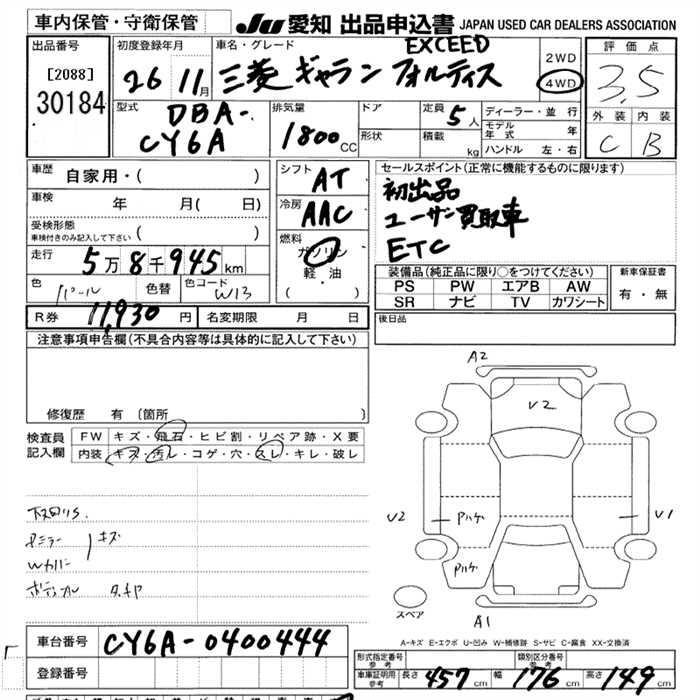 車内保管・守衛保管
JU 愛知 出品申込書 JAPAN USED CAR DEALERS ASSOCIATION
出品番号
[2088]
30184
初度登録年月
26 11月
車名・グレード
EXCEED
三菱 ギャラン フォルティス
2WD
4WD
評価点
3.5
外装 内装
C B
型式
DBA-
CY6A
排気量
1800cc
ドア
形状
定員 5人
積載 kg
ディーラー・並行
モデル年式 年
ハンドル 左・右
車歴 自家用・( )
車検 年 月( 日)
受検形態
車検付きのみ記入して下さい ( )
走行 5万8千945km
色 パール 色替 色コード W13
シフト AT
冷房 AAC
燃料
ガソリン
軽・油
( ・ )
セールスポイント(正常に機能するものに限ります)
初出品
ユーザー買取車
ETC
装備品(純正品に限り○をつけてください)
PS PW エアB AW
SR ナビ TV カワシート
新車保証書
有・無
R券 11,930 円 名変期限 月 日
後日品
注意事項申告欄(不具合内容等は具体的に記入して下さい)
修復歴 有 〔箇所 〕
検査員記入欄
FW キズ・飛石・ヒビ割・リペア跡・X要
内装 キズ・汚レ・コゲ・穴・スレ・キレ・破レ
下回りS.
キズ
Wカバー
A2
V2
V2
V1
A1
スペア
A-キズ E-エクボ U-凹み W-補修跡 S-サビ C-腐食 XX-交換済
車台番号 CY6A-0400444
登録番号
形式指定番号
参考
類別区分番号
参考
車庫証明用
参考
長さ 457cm 幅 176cm 高さ 149cm